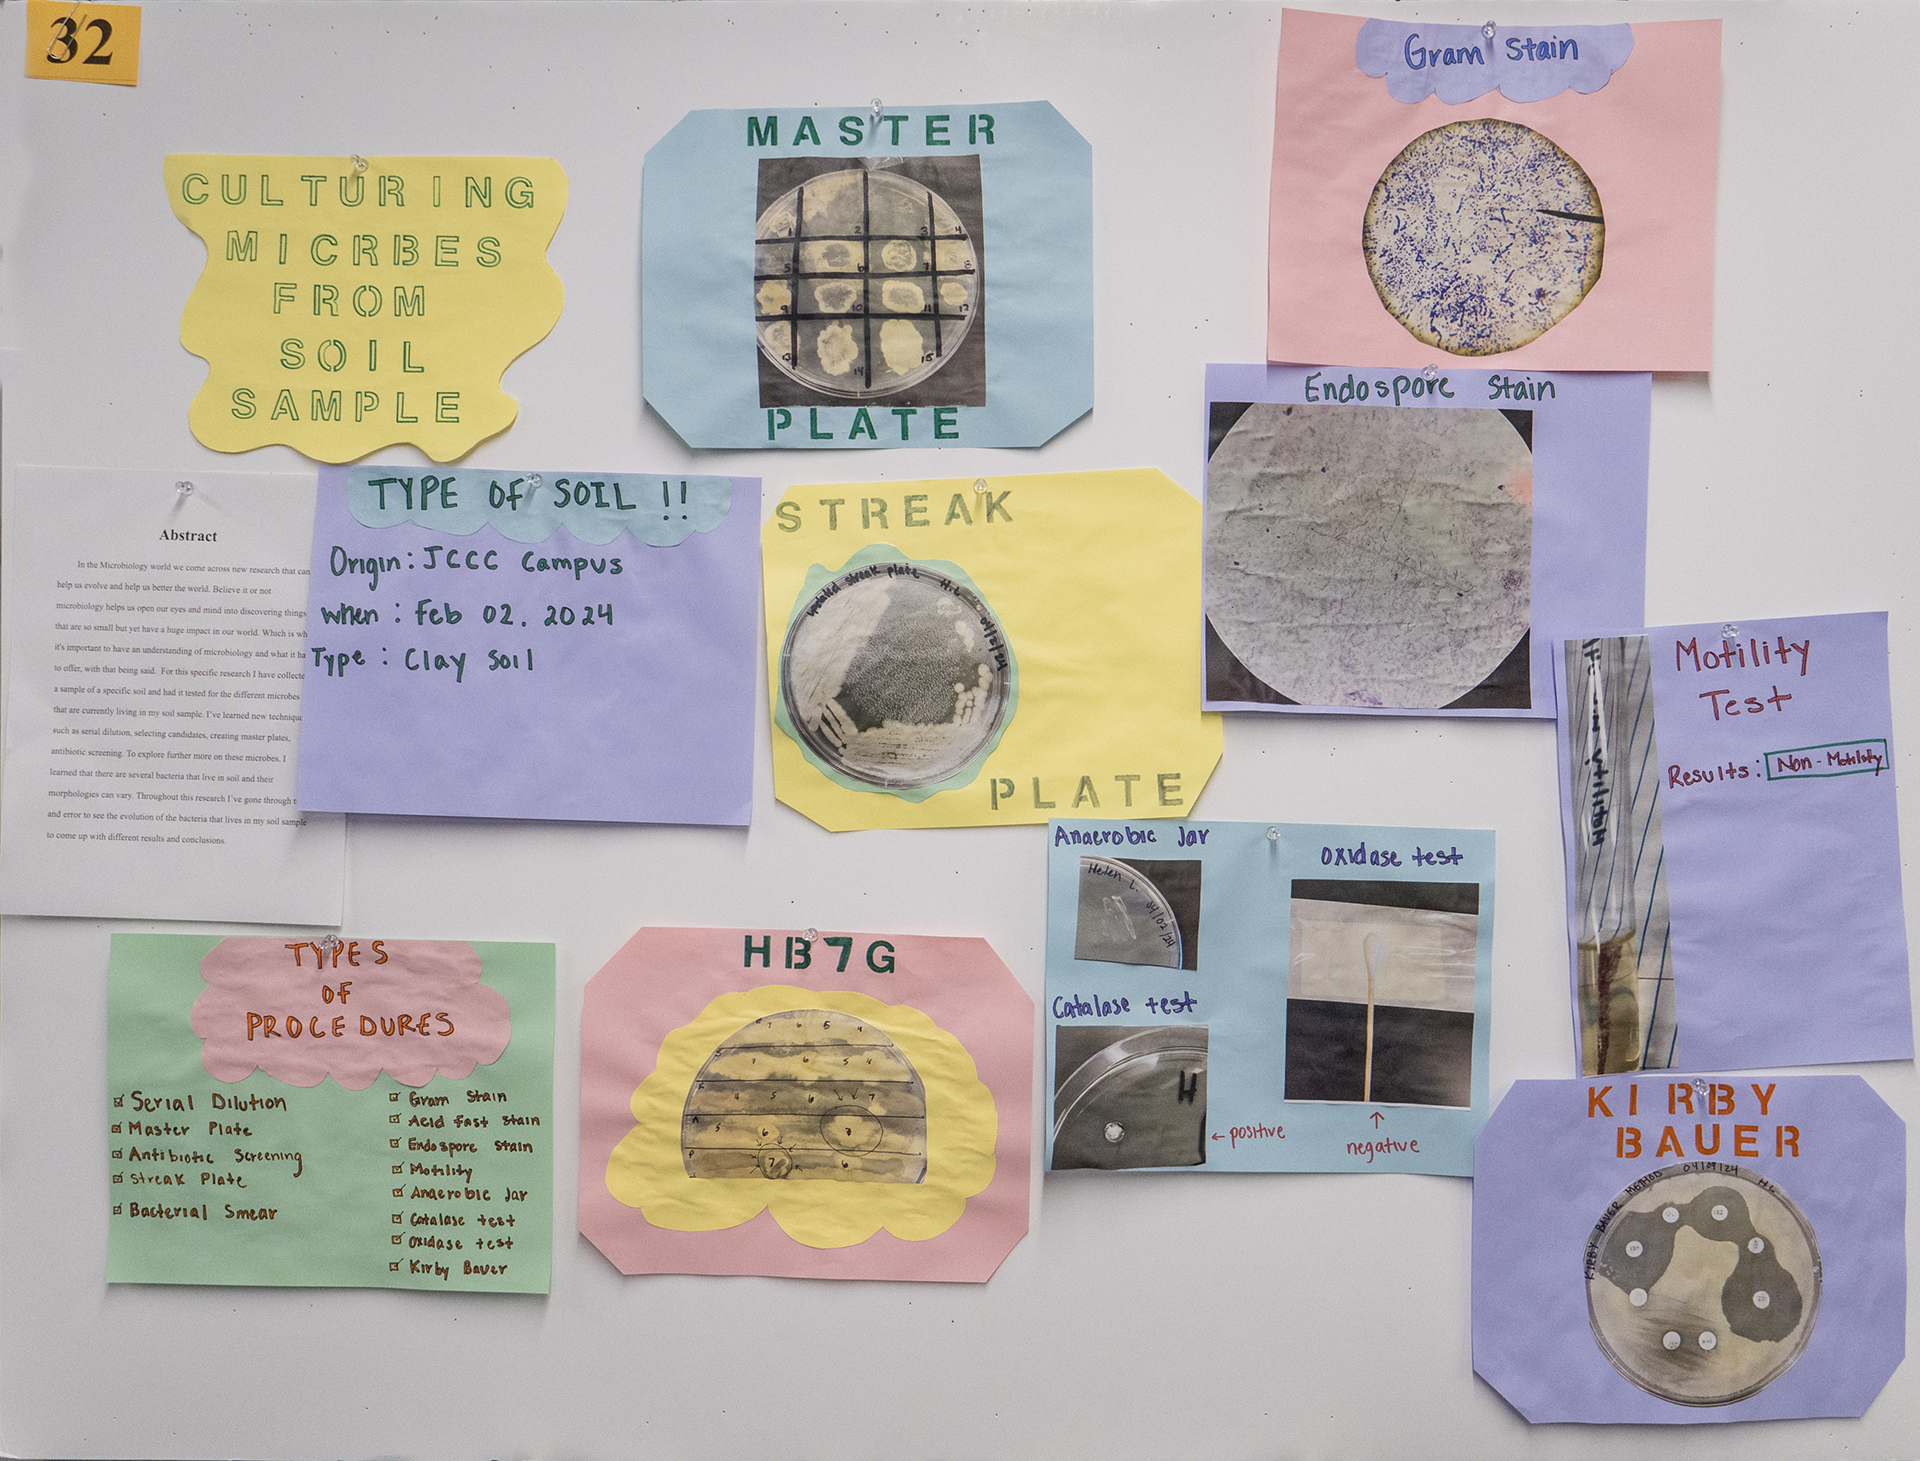 32
CULTURING
MICRBES
FROM
SOIL
SAMPLE
Abstract
In the Microbiology world we come across new research that can
help us evolve and help us better the world. Believe it or not
microbiology helps us open our eyes and mind into discovering things
that are so small but yet have a huge impact in our world. Which is
it's important to have an understanding of microbiology and what it
to offer, with that being said. For this specific research I have
a sample of a specific soil and had it tested for the different microbes
that are currently living in my soil sample. I've learned new
such as serial dilution, selecting candidates, creating master plates,
antibiotic screening. To explore further more on these microbes. I
learned that there are several bacteria that live in soil and their
morphologies can vary. Throughout this research I've gone through
and error to see the evolution of the bacteria that lives in my soil sample
to come up with different results and conclusions.
TYPE OF SOIL !!
Origin: JCCC Campus
when : Feb 02. 2024
Type : Clay Soil
TYPES
OF
PROCEDURES
Serial Dilution
Master Plate
Antibiotic Screening
Streak Plate
Bacterial Smear
Gram Stain
Acid fast stain
Endospore stain
Motility
Anaerobic Jar
Catalase test
Oxidase test
Kirby Bauer
MASTER
1 2 3 4
5 6 7 8
9 10 11 12
13 14 15
PLATE
STREAK
updated streak plate H.L 04/21/24
PLATE
HB7G
7 6 5 4
7 6 5 4
K 4 5 6 7
A 5 6 7
P 7 6
Gram Stain
Endospore Stain
Motility
Test
Results: Non-Motility
Motility
Anaerobic Jar
Helen L.
04/02/24
Catalase test
H
← positive
Oxidase test
↑
negative
KIRBY
BAUER
KIRBY BAUER METHOD 04/09/24 H.L